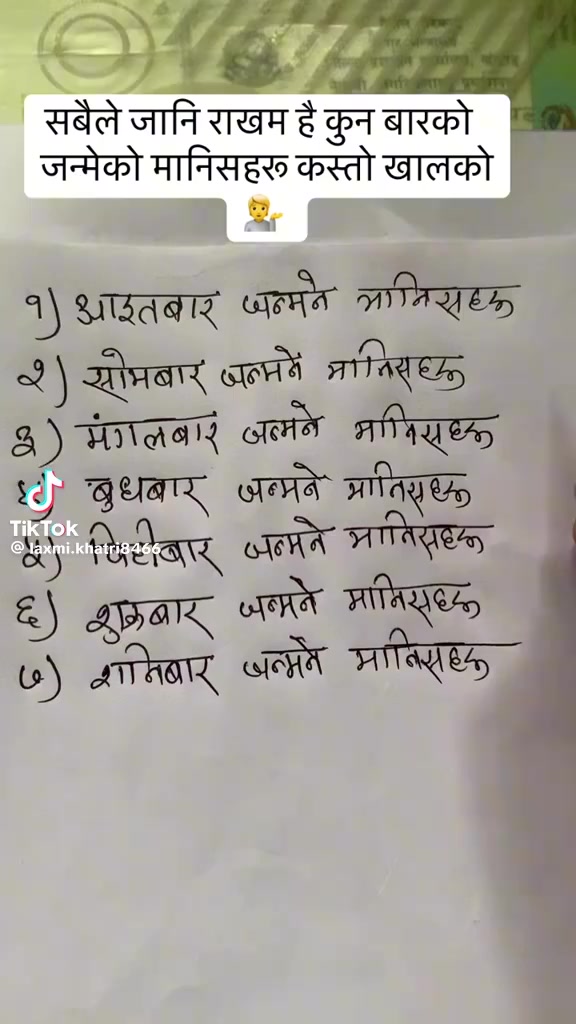 सबैले जानि राखम है कुन बारको
जन्मेको मानिसहरू कस्तो खालको
१) आइतबार जन्मने मानिसहरू
२) सोमबार जन्मने मानिसहरू
३) मंगलबार जन्मने मानिसहरू
बुधबार जन्मने मानिसहरू
TikTok
@laxmi.khatri8466
५) बिहीबार जन्मने मानिसहरू
६) शुक्रबार जन्मने मानिसहरू
७) शनिबार जन्मने मानिसहरू